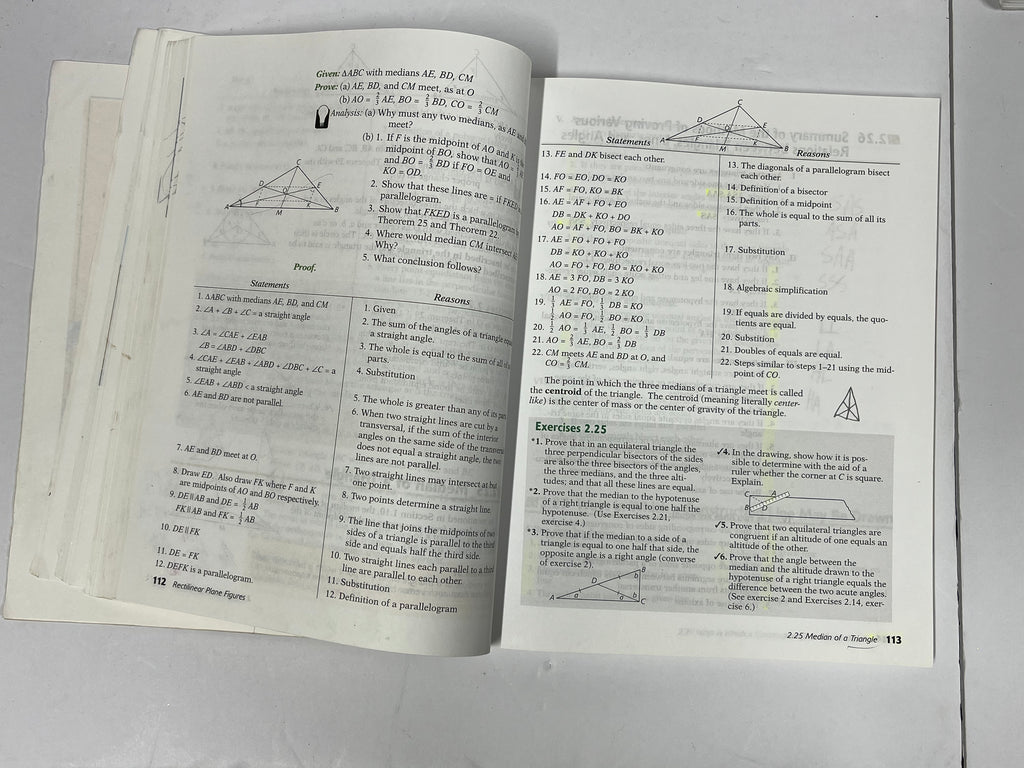 Given: △ABC with medians AE, BD, CM
Prove: (a) AE, BD, and CM meet, as at O
(b) AO = 2/3 AE, BO = 2/3 BD, CO = 2/3 CM
Analysis: (a) Why must any two medians, as AE and
meet?
(b) 1. If F is the midpoint of AO and K is
midpoint of BO, show that AO =
and BO = 2/3 BD if FO = OE and
KO = OD.
2. Show that these lines are = if FKED
parallelogram.
3. Show that FKED is a parallelogram
Theorem 25 and Theorem 22.
4. Where would median CM intersect
Why?
5. What conclusion follows?
Proof.
Statements
1. △ABC with medians AE, BD, and CM
2. ∠A + ∠B + ∠C = a straight angle
3. ∠A = ∠CAE + ∠EAB
∠B = ∠ABD + ∠DBC
4. ∠CAE + ∠EAB + ∠ABD + ∠DBC + ∠C = a
straight angle
5. ∠EAB + ∠ABD < a straight angle
6. AE and BD are not parallel.
7. AE and BD meet at O.
8. Draw ED. Also draw FK where F and K
are midpoints of AO and BO respectively.
9. DE∥AB and DE = 1/2 AB
FK∥AB and FK = 1/2 AB
10. DE∥FK
11. DE = FK
12. DEFK is a parallelogram.
Reasons
1. Given
2. The sum of the angles of a triangle
a straight angle.
3. The whole is equal to the sum of all
parts.
4. Substitution
5. The whole is greater than any of its
6. When two straight lines are cut by a
transversal, if the sum of the interior
angles on the same side of the
does not equal a straight angle, the
lines are not parallel.
7. Two straight lines may intersect at but
one point.
8. Two points determine a straight line.
9. The line that joins the midpoints of two
sides of a triangle is parallel to the third
side and equals half the third side.
10. Two straight lines each parallel to a third
line are parallel to each other.
11. Substitution
12. Definition of a parallelogram
112 Rectilinear Plane Figures
Statements
13. FE and DK bisect each other.
14. FO = EO, DO = KO
15. AF = FO, KO = BK
16. AE = AF + FO + EO
DB = DK + KO + DO
AO = AF + FO, BO = BK + KO
17. AE = FO + FO + FO
DB = KO + KO + KO
AO = FO + FO, BO = KO + KO
18. AE = 3 FO, DB = 3 KO
AO = 2 FO, BO = 2 KO
19. 1/3 AE = FO, 1/3 DB = KO
1/2 AO = FO, 1/2 BO = KO
20. 1/2 AO = 1/3 AE, 1/2 BO = 1/3 DB
21. AO = 2/3 AE, BO = 2/3 DB
22. CM meets AE and BD at O, and
CO = 2/3 CM.
Reasons
13. The diagonals of a parallelogram bisect
each other.
14. Definition of a bisector
15. Definition of a midpoint
16. The whole is equal to the sum of all its
parts.
17. Substitution
18. Algebraic simplification
19. If equals are divided by equals, the quo-
tients are equal.
20. Substition
21. Doubles of equals are equal.
22. Steps similar to steps 1–21 using the mid-
point of CO.
The point in which the three medians of a triangle meet is called
the centroid of the triangle. The centroid (meaning literally center-
like) is the center of mass or the center of gravity of the triangle.
Exercises 2.25
*1. Prove that in an equilateral triangle the
three perpendicular bisectors of the sides
are also the three bisectors of the angles,
the three medians, and the three alti-
tudes; and that all these lines are equal.
*2. Prove that the median to the hypotenuse
of a right triangle is equal to one half the
hypotenuse. (Use Exercises 2.21,
exercise 4.)
*3. Prove that if the median to a side of a
triangle is equal to one half that side, the
opposite angle is a right angle (converse
of exercise 2).
✓4. In the drawing, show how it is pos-
sible to determine with the aid of a
ruler whether the corner at C is square.
Explain.
✓5. Prove that two equilateral triangles are
congruent if an altitude of one equals an
altitude of the other.
✓6. Prove that the angle between the
median and the altitude drawn to the
hypotenuse of a right triangle equals the
difference between the two acute angles.
(See exercise 2 and Exercises 2.14, exer-
cise 6.)
2.25 Median of a Triangle 113